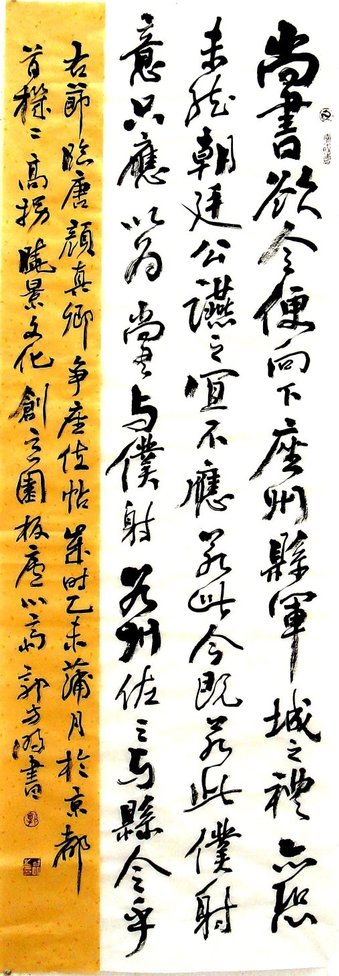 尚書欲令便向下座州縣軍城之禮亦恐
未然朝廷公讌之宜不應若此今既若此僕射
意只應以為尚書与僕射若州佐之与縣令乎
右節臨唐顏真卿争座位帖歲时乙未蒲月於京都
首機二高拐曉景文化創意園板廬山 郭方 書